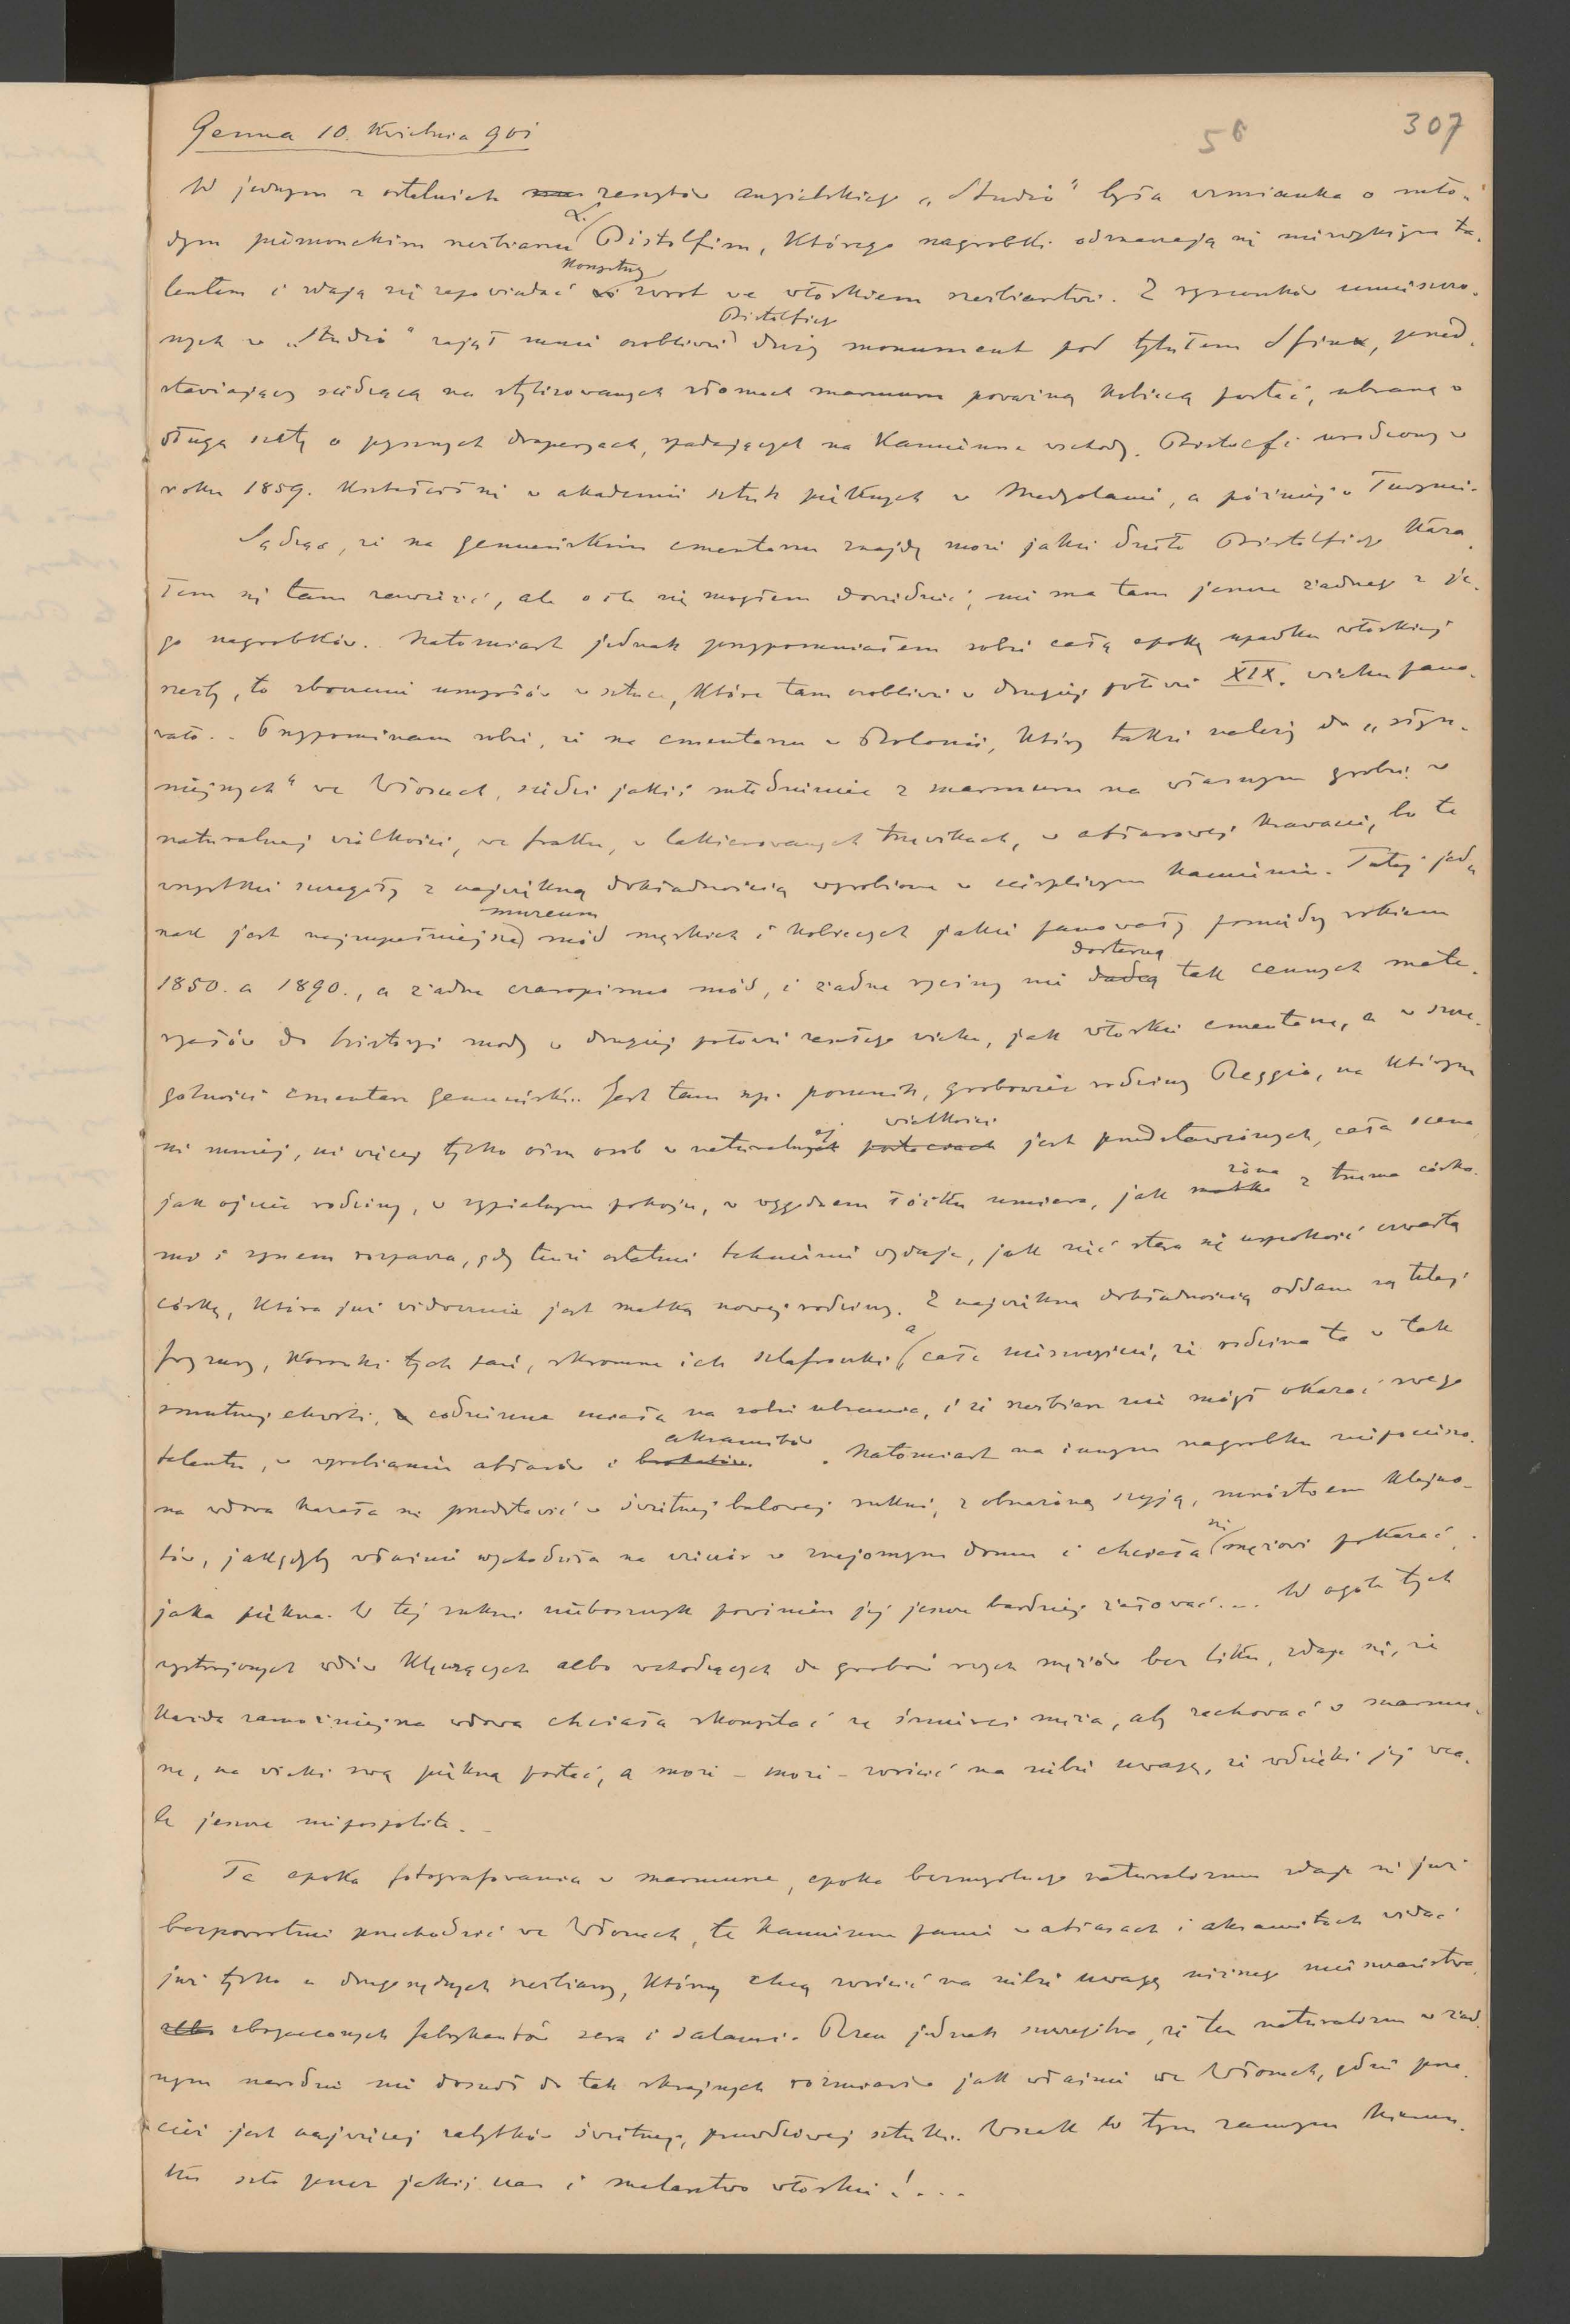 Genua 10. Kwietnia 901
56
307
W jednym z ostatnich zeszytów angielskiego „Studio" była wzmianka o mło-
dym piemonckim rzeźbiarzu L. Bistolfim, którego nagrobki odznaczają się niezwykłym ta-
lentem i zdają się zapowiadać korzystny zwrot we włoskiem rzeźbiarstwie. Z rysunków umieszczo-
nych w „Studio" zajął mnie osobliwie Bistolfiego duży monument pod tytułem Sfinx, przed-
stawiający siedzącą na stylizowanych złomach marmuru poważną kobiecą postać, ubraną w
długą szatę o pysznych draperyach, spadających na kamienne wschody. Bistolfi urodzony w
roku 1859. kształcił się w akademii sztuk pięknych w Medyolanie, a później w Turynie.
Sądząc, że na genueńskim cmentarzu znajdę może jakie dzieło Bistolfiego kaza-
łem się tam zawieźć, ale o ile się mogłem dowiedzieć, nie ma tam jeszcze żadnego z je-
go nagrobków. Natomiast jednak przypomniałem sobie całą epokę upadku włoskiej
rzeźby, to zboczenie umysłów w sztuce, które tam osobliwie w drugiej połowie XIX. wieku pano-
wało.. Przypominam sobie, że na cmentarzu w Bolonii, który także należy do „słyn-
niejszych" we Włoszech, siedzi jakiś młodzieniec z marmuru na własnym grobie w
naturalnej wielkości, we fraku, w lakierowanych trzewikach, w atłasowej krawacie, bo te
wszystkie szczegóły z największą dokładnością wyrobione w cierpliwym kamieniu. Tutaj jed-
nak jest najzupełniejsze muzeum mód męskich i kobiecych jakie panowały pomiędzy rokiem
1850. a 1890., a żadne czasopismo mód, i żadne ryciny nie dostarczą tak cennych mate-
ryałów do historyi mody w drugiej połowie zeszłego wieku, jak włoskie cmentarze, a w szcze-
gólności cmentarz genueński.. Jest tam np. pomnik, grobowiec rodziny Reggio, na którym
ni mniej, ni więcej tylko ośm osób w naturalnej wielkości jest przedstawionych, cała scena
jak ojciec rodziny, w sypialnym pokoju, w wygodnem łóżku umiera, jak żona z trzema córka-
mi i synem rozpacza, gdy tenże ostatnie tchnienie wydaje, jak zięć stara się uspokoić czwartą
córkę, która już widocznie jest matką nowej rodziny. Z największą dokładnością oddane są tutaj
fryzury, koronki tych pań, skromne ich szlafroczki, a całe nieszczęście, że rodzina ta w tak
smutnej chwili, codzienne miała na sobie ubranie, i że rzeźbiarz nie mógł okazać swego
talentu, w wyrabianiu atłasów i aksamitów. Natomiast na innym nagrobku niepocieszo-
na wdowa kazała się przedstawić w świetnej balowej sukni, z obnażoną szyją, mnóstwem klejno-
tów, jakgdyby właśnie wychodziła na wieczór w znajomym domu i chciała się mężowi pokazać,
jaka piękna. W tej sukni nieboszczyk powinien jej jeszcze bardziej żałować... W ogóle tych
wystrojonych wdów klęczących albo wchodzących do grobów swych mężów bez liku, zdaje się, że
każda zamożniejsza wdowa chciała skorzystać ze śmierci męża, aby zachować w marmu-
rze, na wieki swą piękną postać, a może – może – zwrócić na siebie uwagę, że wdzięki jej wca-
le jeszcze niepospolite..
Ta epoka fotografowania w marmurze, epoka bezmyślnego naturalizmu zdaje się już
bezpowrotnie przechodzić we Włoszech, te kamienne panie w atłasach i aksamitach widać
już tylko u drugorzędnych rzeźbiarzy, którzy chcą zwrócić na siebie uwagę niższego mieszczaństwa,
zbogaconych fabrykantów sera i salami. Rzecz jednak szczególna, że ten naturalizm w żad-
nym narodzie nie doszedł do tak skrajnych rozmiarów jak właśnie we Włoszech, gdzie prze-
cież jest najwięcej zabytków świetnej, prawdziwej sztuki. Wszak w tym samym kierun-
ku szło przez jakiś czas i malarstwo włoskie!...